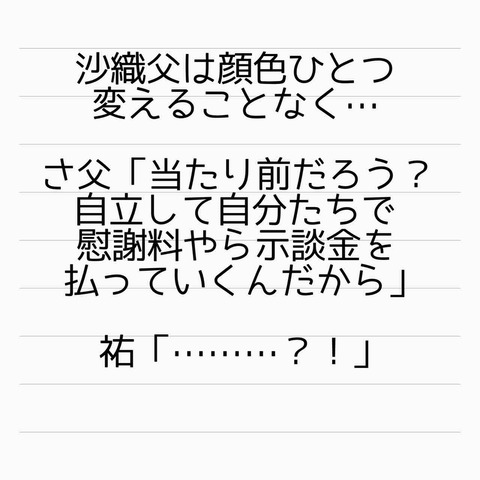 沙織父は顔色ひとつ
変えることなく…
さ父「当たり前だろう？
自立して自分たちで
慰謝料やら示談金を
払っていくんだから」
祐「………？！」